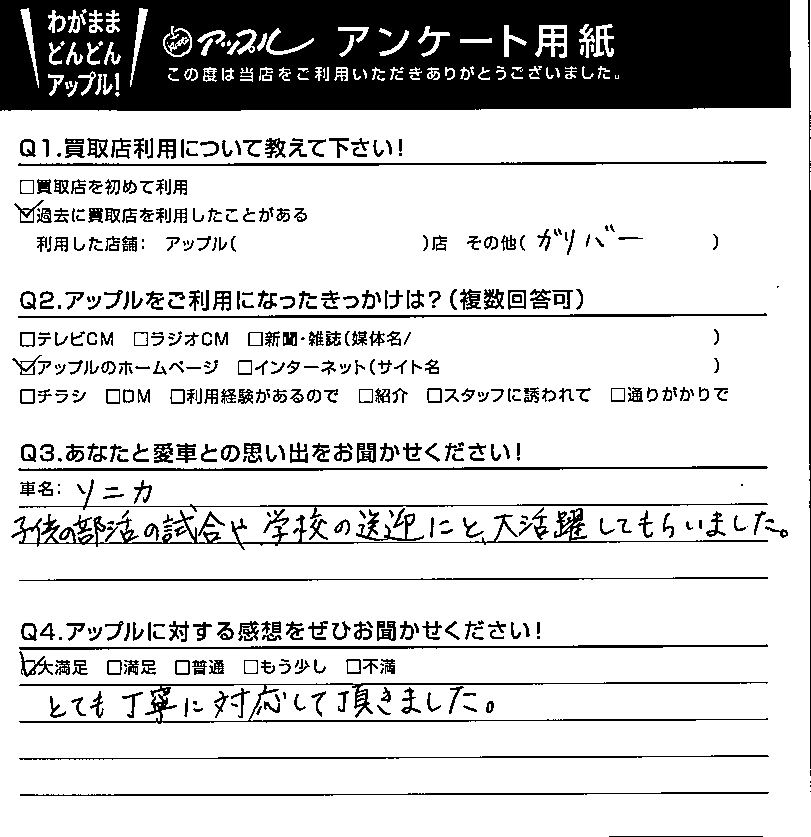 わがまま
どんどん
アップル!
Apple アップル アンケート用紙
この度は当店をご利用いただきありがとうございました。
Q1.買取店利用について教えて下さい!
□買取店を初めて利用
☑過去に買取店を利用したことがある
利用した店舗: アップル( )店 その他( ガリバー )
Q2.アップルをご利用になったきっかけは?(複数回答可)
□テレビCM □ラジオCM □新聞・雑誌(媒体名/ )
☑アップルのホームページ □インターネット(サイト名 )
□チラシ □DM □利用経験があるので □紹介 □スタッフに誘われて □通りがかりで
Q3.あなたと愛車との思い出をお聞かせください!
車名: ソニカ
子供の部活の試合や学校の送迎にと、大活躍してもらいました。
Q4.アップルに対する感想をぜひお聞かせください!
☑大満足 □満足 □普通 □もう少し □不満
とても丁寧に対応して頂きました。